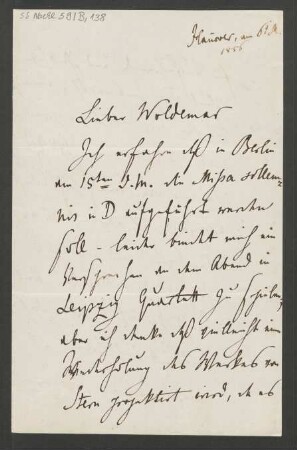 SS Nachl. 3 B I B, 138
Hannover, am 6t
1856
Lieber Woldemar
Ich erfahre daß in Berlin
am 15ten d. M. die Missa solem-
nis in D aufgeführt werden
soll - leider bindet mich ein
Versprechen an dem Abend in
Leipzig Quartett zu spielen,
aber ich denke daß vielleicht eine
Wiederholung des Werkes von
Stern projektirt wird, da es